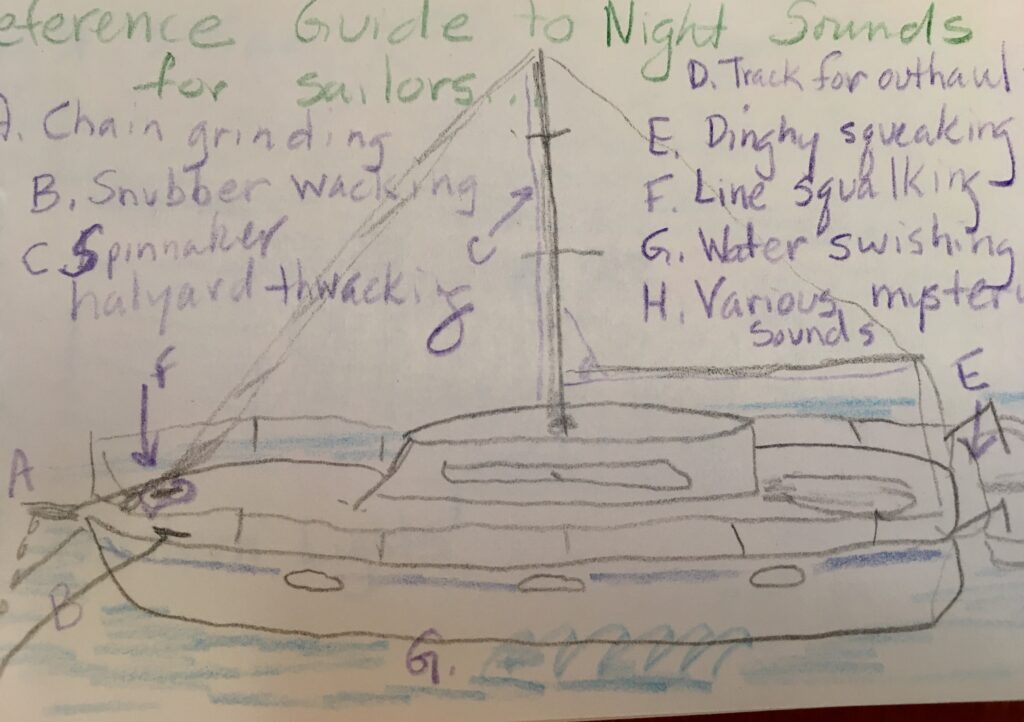 eference Guide to Night Sounds
for sailors...
A. Chain grinding
B. Snubber wacking
C. Spinnaker
halyard thwacking
D. Track for outhaul
E. Dinghy squeaking
F. Line squalking
G. Water swishing
H. Various
Sounds
C
F
E
A
B
G.